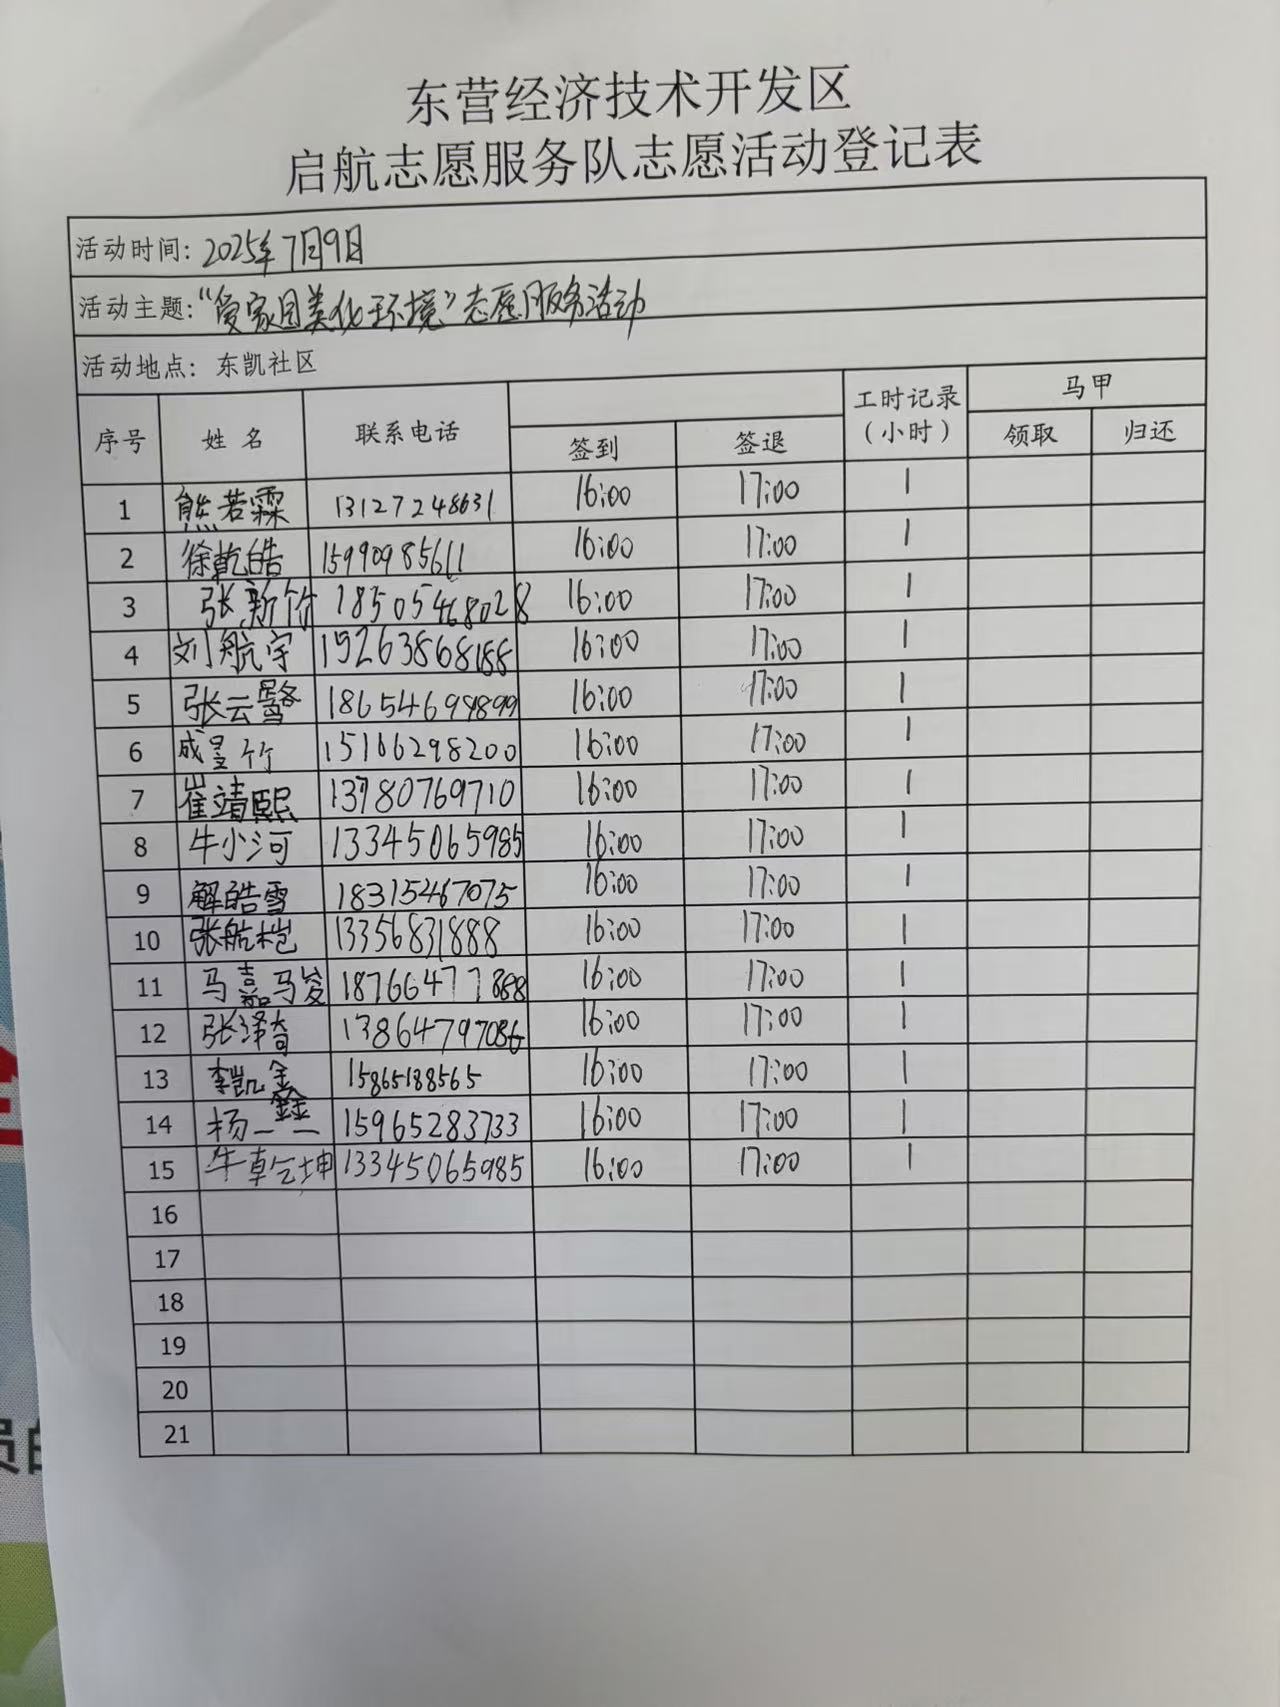 东营经济技术开发区
启航志愿服务队志愿活动登记表
活动时间：2025年7月9日
活动主题："爱家园美化环境"志愿服务活动
活动地点：东凯社区
序号 姓名 联系电话 签到 签退 工时记录（小时） 马甲 领取 归还
1 熊若霖 13127248631 16:00 17:00 1
2 徐乾皓 15990985611 16:00 17:00 1
3 张新竹 18505468028 16:00 17:00 1
4 刘航宇 15263868188 16:00 17:00 1
5 张云 18654699899 16:00 17:00 1
6 成昱竹 15166298200 16:00 17:00 1
7 崔靖熙 13780769710 16:00 17:00 1
8 牛小河 13345065985 16:00 17:00 1
9 解皓雪 18315467075 16:00 17:00 1
10 张航恺 13356831888 16:00 17:00 1
11 马嘉骏 18766477888 16:00 17:00 1
12 张泽奇 13864797086 16:00 17:00 1
13 李凯鑫 15865188565 16:00 17:00 1
14 杨一 15965283733 16:00 17:00 1
15 牛乾坤 13345065985 16:00 17:00 1
16
17
18
19
20
21